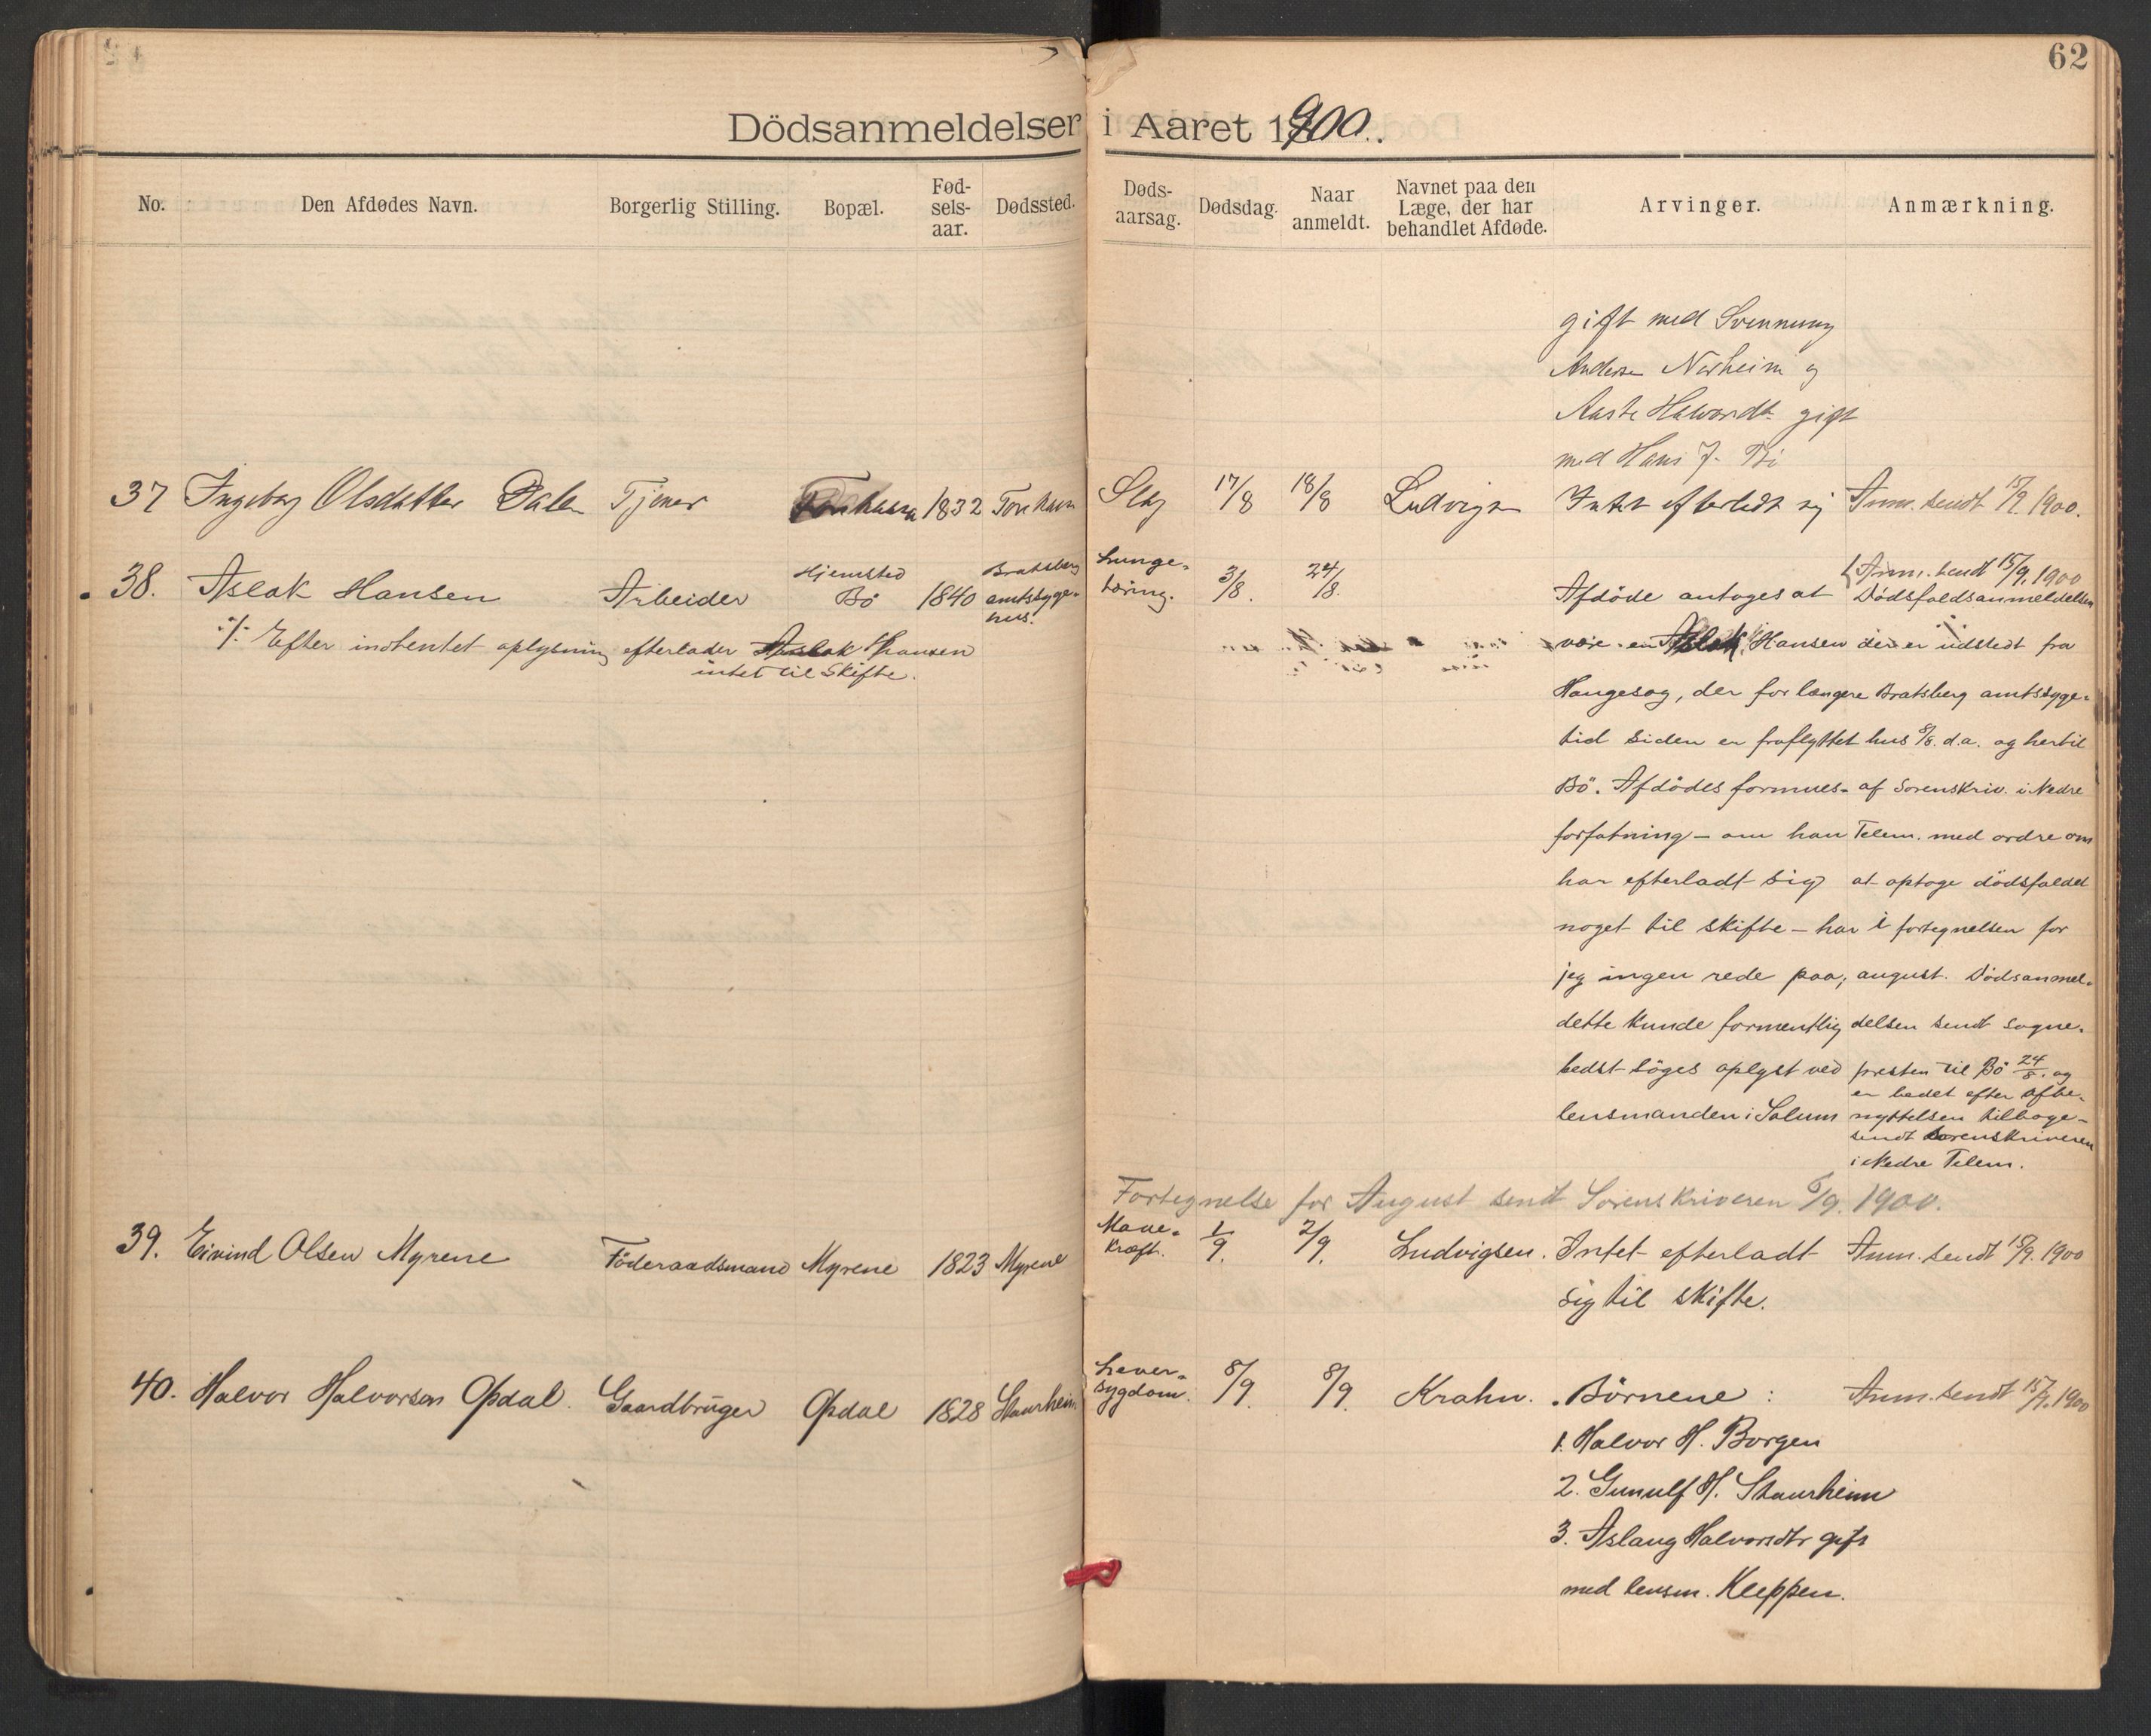 62
Dödsanmeldelser i Aaret 1900.
No. Den Afdødes Navn. Borgerlig Stilling. Bopæl. Fødselsaar. Dødssted. Dødsaarsag. Dødsdag. Naar anmeldt. Navnet paa den Læge, der har behandlet Afdøde. Arvinger. Anmærkning.
gift med Svennung
Anders Norheim og
Aaste gift
med Hans J. Bö
37 Ingeborg Olsdatter Dalen Tjener 1832 Slag 17/8 18/8 Ludvigsen Intet efterladt sig Anm. sendt 15/9. 1900.
38. Aslak Hansen Arbeider Hjemsted Bö 1840 Bratsberg amtssygehus. Lungetæring. 3/8. 24/8. Afdöde antages at Anm. sendt 15/9. 1900 Dödsfaldsanmeldelsen
./. Efter indhentet oplysning efterlader Aslak Hansen
intet til Skifte.
være en Aslak Hansen der er udstedt fra
Haugesag, der for længere Bratsberg amtssyge-
tid siden er fraflyttet hus 8/8. d.a. og hertil
Bö. Afdödes formues- af Sorenskriv. i Nedre
forfatning – om han Telem. med ordre om
har efterladt sig at optage dödsfaldet
noget til skifte – har i fortegnelsen for
jeg ingen rede paa; august. Dödsanmel-
dette kunde formentlig delsen sendt sogne-
bedst söges oplyst ved presten til Bö 24/8. og
er bedet efter afbe-
lensmanden i Solum nyttelsen tilbage-
sendt Sorenskriveren
i Nedre Telem.
Fortegnelse for August sendt Sorenskriveren /9. 1900.
39. Eivind Olsen Myrene Föderaadsmand Myrene 1823 Myrene Mavekræft. 1/9. 2/9. Ludvigsen. Intet efterladt Anm. sendt 15/9. 1900
sig til skifte.
40. Halvor Halvorsen Opdal. Gaardbruger Opdal 1828 Staurheim Leversygdom. 8/9. 8/9. Krahn. Börnene: Anm. sendt 15/9. 1900
1. Halvor H. Borgen
2. Gunulf H. Staurheim
3. Aslaug Halvorsdtr gift
med lensm. Kleppen.